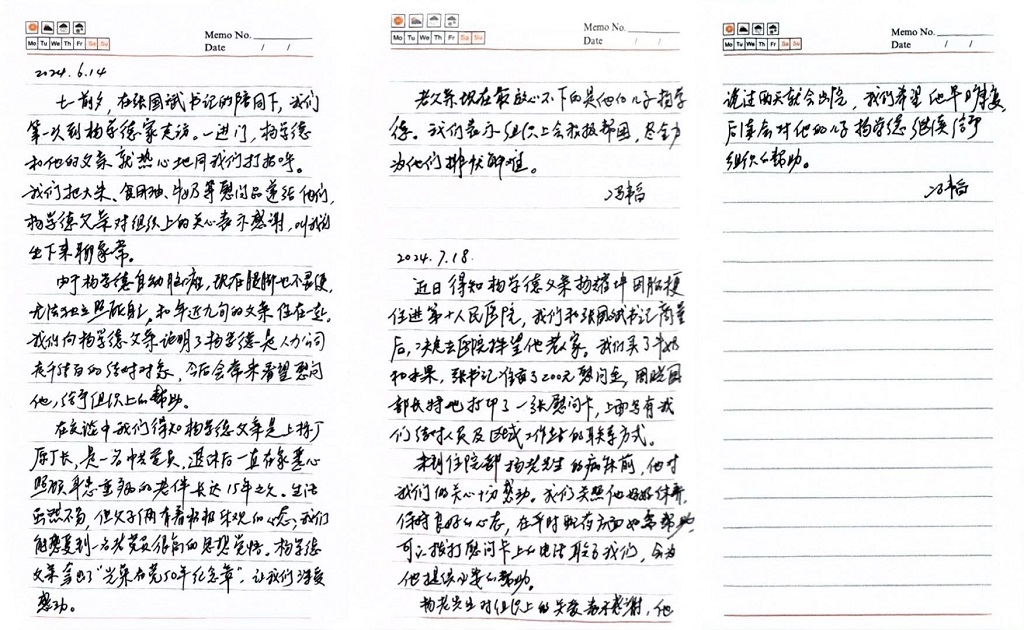 Memo No.
Mo Tu We Th Fr Sa Su
Date / /
2024.6.14
七一前夕，在张国斌书记的陪同下，我们
第一次到杨学德家走访。一进门，杨学德
和他的父亲就热心地同我们打招呼。
我们把大米、食用油、牛奶等慰问品送给他们，
杨学德父亲对组织上的关心表示感谢，叫我们
坐下来聊家常。
由于杨学德自幼脑瘫，现在腿脚也不灵便，
无法独立照顾自己，和年近九旬的父亲住在一起。
我们向杨学德父亲说明了杨学德是人力公司
共结对的结对对象，今后会常来看望慰问
他，给予组织上的帮助。
在交谈中我们得知杨学德父亲是上标厂
原厂长，是一名中共党员，退休后一直在家悉心
照顾身患重病的老伴长达15年之久。生活
虽然不易，但父子俩有着积极乐观的心态；我们
能感受到一名老党员很高的思想觉悟。杨学德
父亲拿出了“光荣在党50年纪念章”，让我们深受
感动。
Memo No.
Mo Tu We Th Fr Sa Su
Date / /
老父亲现在最放心不下的是他的儿子杨学
德。我们表示组织上会积极帮困，尽全力
为他们排忧解难。
冯韬
2024.7.18.
近日得知杨学德父亲杨耀坤因脑梗
住进第十人民医院，我们和张国斌书记商量
后，决定去医院探望他老人家。我们买了牛奶
和水果，张书记准备了200元慰问金，周晓国
部长特地打印了一张慰问卡，上面写有我
们结对人员及区域工作站的联系方式。
来到住院部杨老先生的病床前，他对
我们的关心十分感动。我们关照他好好休养，
保持良好的心态，在平时就存方面如需帮助，
可以拨打慰问卡上的电话联系我们，会为
他提供必要的帮助。
杨老先生对组织上的关爱表示感谢，他
Memo No.
Mo Tu We Th Fr Sa Su
Date / /
说过两天就会出院，我们希望他早日康复，
后续会对他的儿子杨学德继续给予
组织的帮助。
冯韬